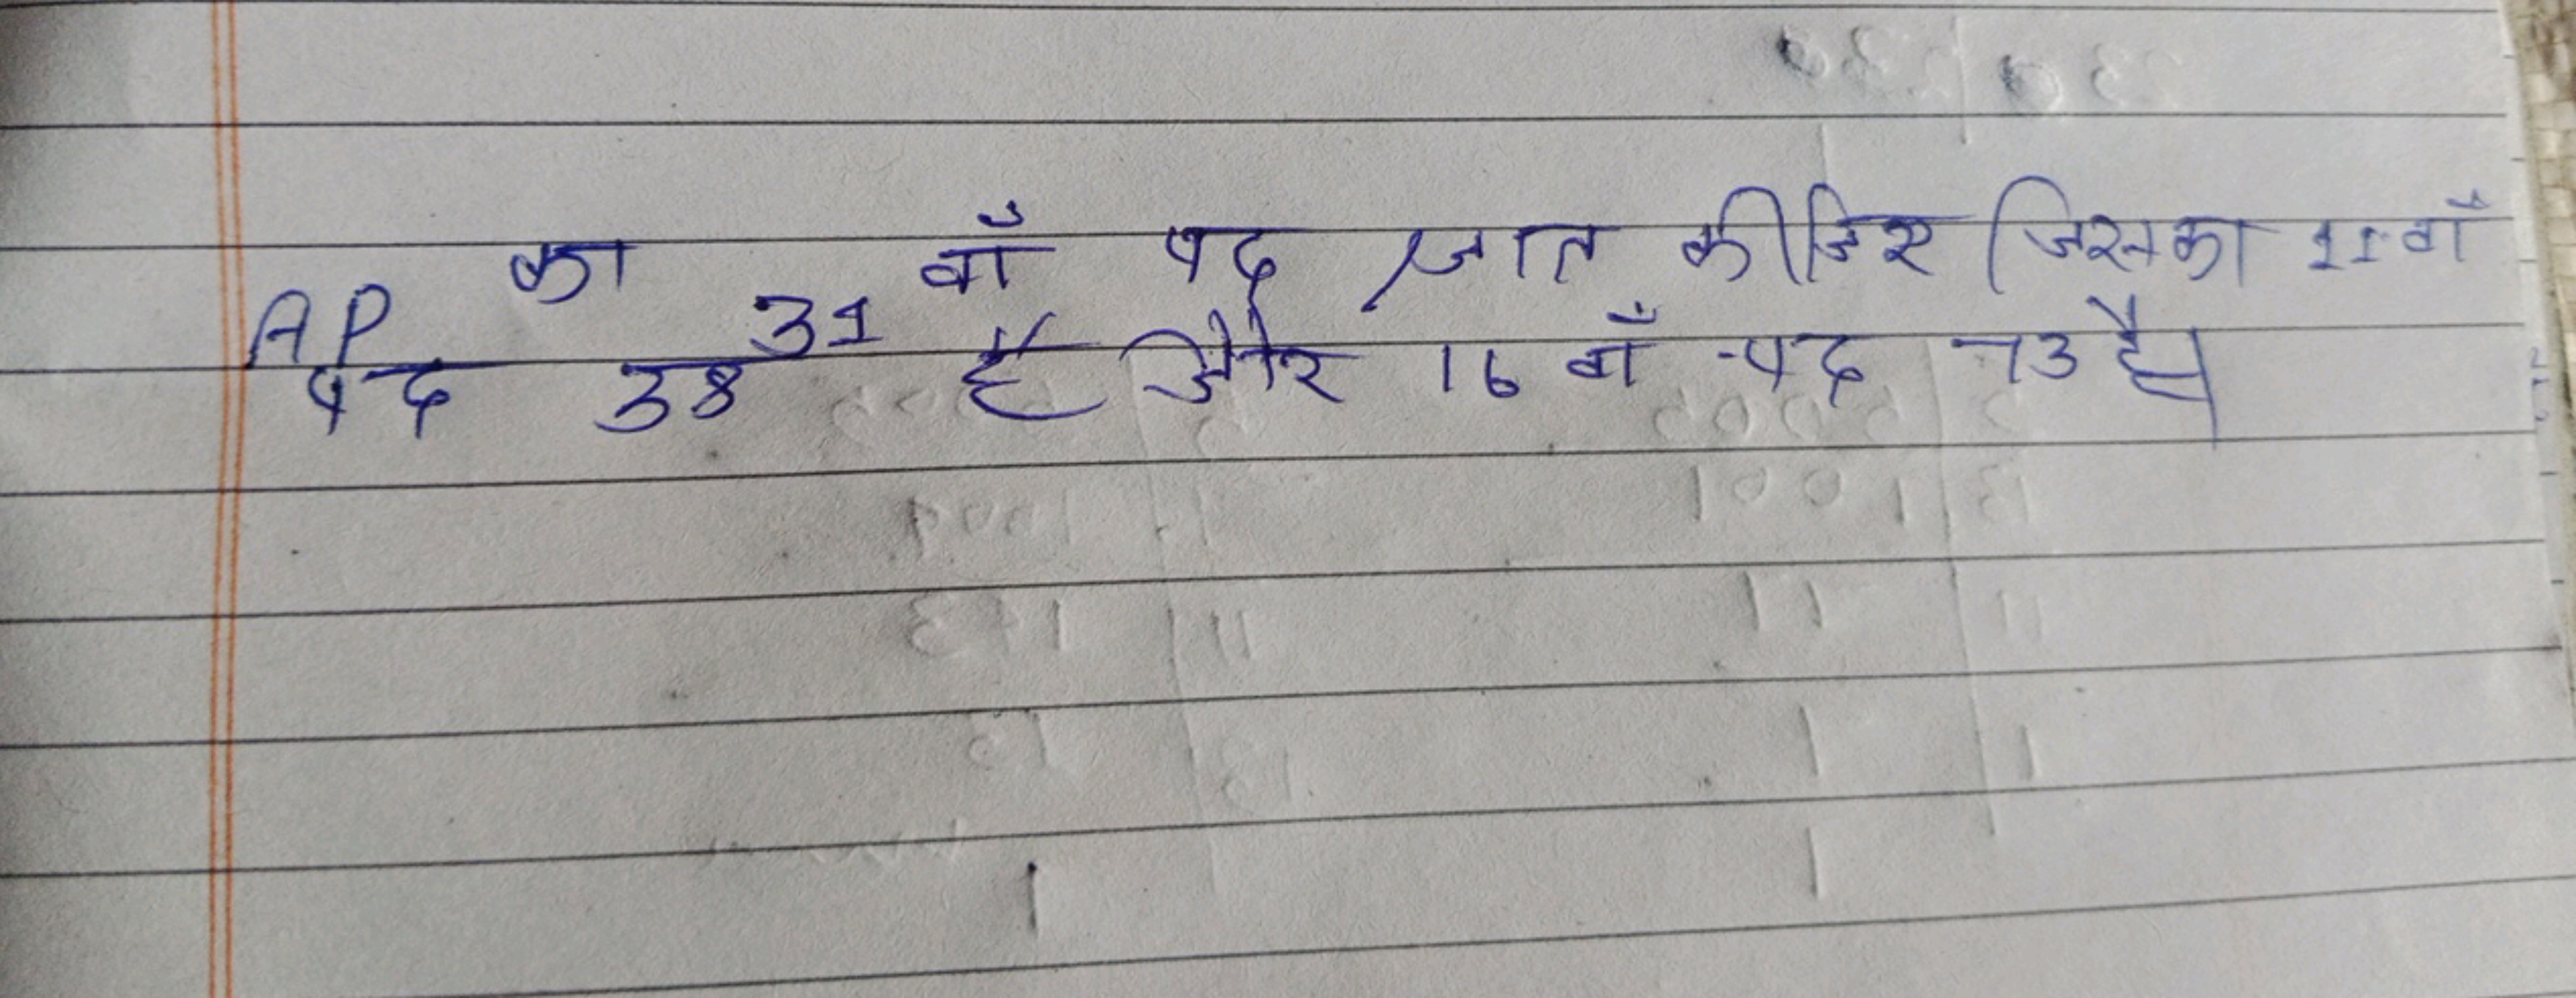 AP का 31 वाँ पद ज्ञात कीजिए जिसका 11 वाँ
पद 38 है और 16 वाँ पद 73 है।